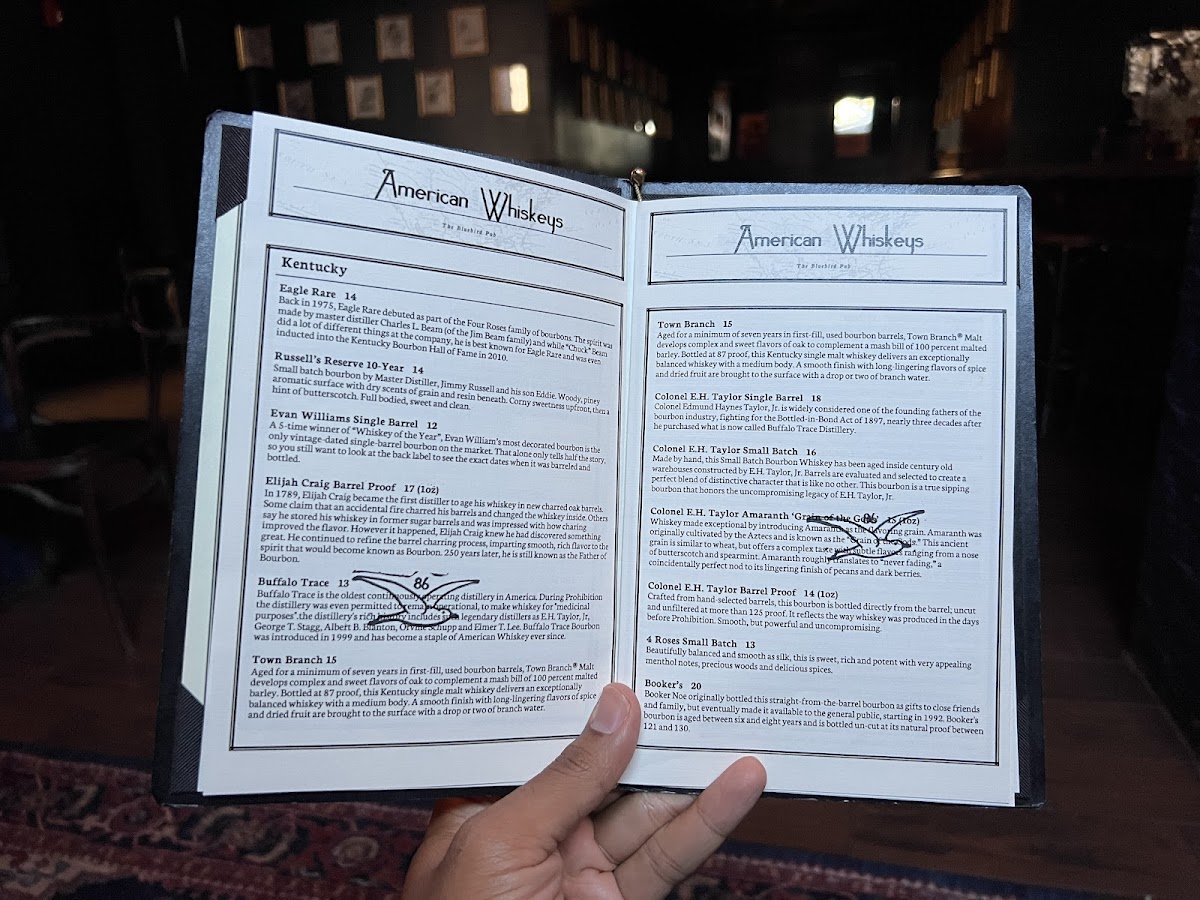 American Whiskeys
The Bluebird Pub
Kentucky
Eagle Rare 14
Back in 1975, Eagle Rare debuted as part of the Four Roses family of bourbons. The spirit was
made by master distiller Charles L. Beam (of the Jim Beam family) and while "Chuck" Beam
did a lot of different things at the company, he is best known for Eagle Rare and was even
inducted into the Kentucky Bourbon Hall of Fame in 2010.
Russell's Reserve 10-Year 14
Small batch bourbon by Master Distiller, Jimmy Russell and his son Eddie. Woody, piney
aromatic surface with dry scents of grain and resin beneath. Corny sweetness upfront, then a
hint of butterscotch. Full bodied, sweet and clean.
Evan Williams Single Barrel 12
A 5-time winner of "Whiskey of the Year", Evan William's most decorated bourbon is the
only vintage-dated single-barrel bourbon on the market. That alone only tells half the story,
so you still want to look at the back label to see the exact dates when it was barreled and
bottled.
Elijah Craig Barrel Proof 17 (1oz)
In 1789, Elijah Craig became the first distiller to age his whiskey in new charred oak barrels.
Some claim that an accidental fire charred his barrels and changed the whiskey inside. Others
say he stored his whiskey in former sugar barrels and was impressed with how charing
improved the flavor. However it happened, Elijah Craig knew he had discovered something
great. He continued to refine the barrel charring process, imparting smooth, rich flavor to the
spirit that would become known as Bourbon. 250 years later, he is still known as the Father of
Bourbon.
Buffalo Trace 13
86
Buffalo Trace is the oldest continuously operating distillery in America. During Prohibition
the distillery was even permitted to remain operational, to make whiskey for "medicinal
purposes".the distillery's rich history includes such legendary distillers as E.H. Taylor, Jr,
George T. Stagg, Albert B. Blanton, Orville Schupp and Elmer T. Lee. Buffalo Trace Bourbon
was introduced in 1999 and has become a staple of American Whiskey ever since.
Town Branch 15
Aged for a minimum of seven years in first-fill, used bourbon barrels, Town Branch® Malt
develops complex and sweet flavors of oak to complement a mash bill of 100 percent malted
barley. Bottled at 87 proof, this Kentucky single malt whiskey delivers an exceptionally
balanced whiskey with a medium body. A smooth finish with long-lingering flavors of spice
and dried fruit are brought to the surface with a drop or two of branch water.
American Whiskeys
The Bluebird Pub
Town Branch 15
Aged for a minimum of seven years in first-fill, used bourbon barrels, Town Branch® Malt
develops complex and sweet flavors of oak to complement a mash bill of 100 percent malted
barley. Bottled at 87 proof, this Kentucky single malt whiskey delivers an exceptionally
balanced whiskey with a medium body. A smooth finish with long-lingering flavors of spice
and dried fruit are brought to the surface with a drop or two of branch water.
Colonel E.H. Taylor Single Barrel 18
Colonel Edmund Haynes Taylor, Jr. is widely considered one of the founding fathers of the
bourbon industry, fighting for the Bottled-in-Bond Act of 1897, nearly three decades after
he purchased what is now called Buffalo Trace Distillery.
Colonel E.H. Taylor Small Batch 16
Made by hand, this Small Batch Bourbon Whiskey has been aged inside century old
warehouses constructed by E.H. Taylor, Jr. Barrels are evaluated and selected to create a
perfect blend of distinctive character that is like no other. This bourbon is a true sipping
bourbon that honors the uncompromising legacy of E.H. Taylor, Jr.
Colonel E.H. Taylor Amaranth 'Grain of the Gods' 15 (1oz)
86
Whiskey made exceptional by introducing Amaranth as the flavoring grain. Amaranth was
originally cultivated by the Aztecs and is known as the "Grain of the Gods." This ancient
grain is similar to wheat, but offers a complex taste with subtle flavors ranging from a nose
of butterscotch and spearmint. Amaranth roughly translates to "never fading," a
coincidentally perfect nod to its lingering finish of pecans and dark berries.
Colonel E.H. Taylor Barrel Proof 14 (1oz)
Crafted from hand-selected barrels, this bourbon is bottled directly from the barrel; uncut
and unfiltered at more than 125 proof. It reflects the way whiskey was produced in the days
before Prohibition. Smooth, but powerful and uncompromising.
4 Roses Small Batch 13
Beautifully balanced and smooth as silk, this is sweet, rich and potent with very appealing
menthol notes, precious woods and delicious spices.
Booker's 20
Booker Noe originally bottled this straight-from-the-barrel bourbon as gifts to close friends
and family, but eventually made it available to the general public, starting in 1992. Booker's
bourbon is aged between six and eight years and is bottled un-cut at its natural proof between
121 and 130.